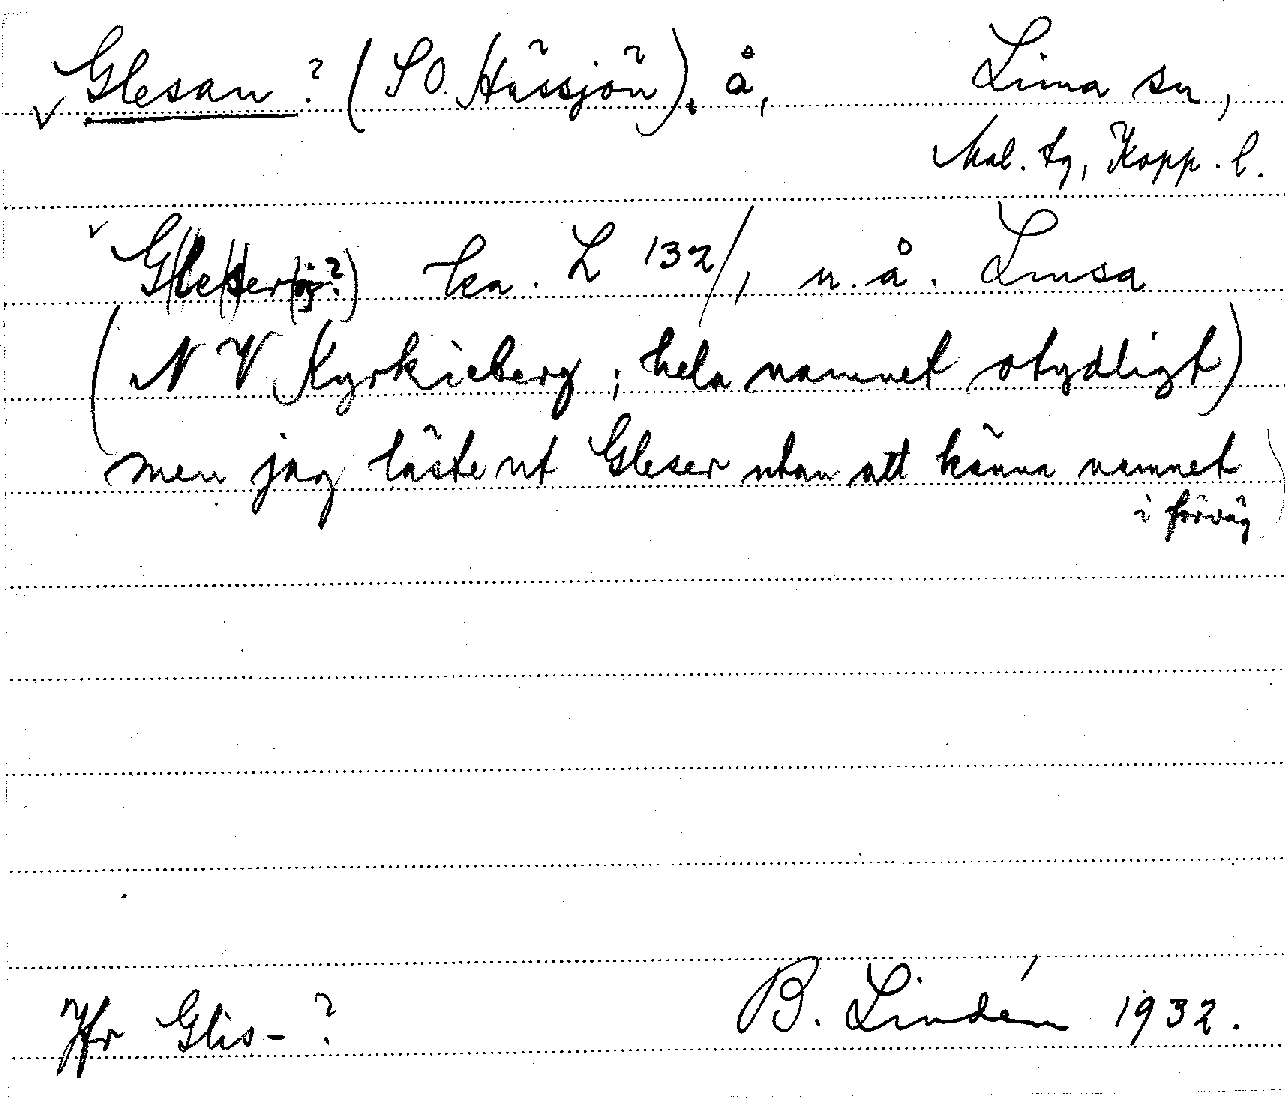 Glesan? (SO Hässjön), å, Lima sn,
Mal. tg, Kopp. l.
G(le)(s)er(ös?) ka. L 132/, n. å. Limsa
(NV Kyrkieberg; hela namnet otydligt)
men jag läste ut Gleser utan att känna namnet
i förväg)
Jfr Glis-? B. Lindén 1932.